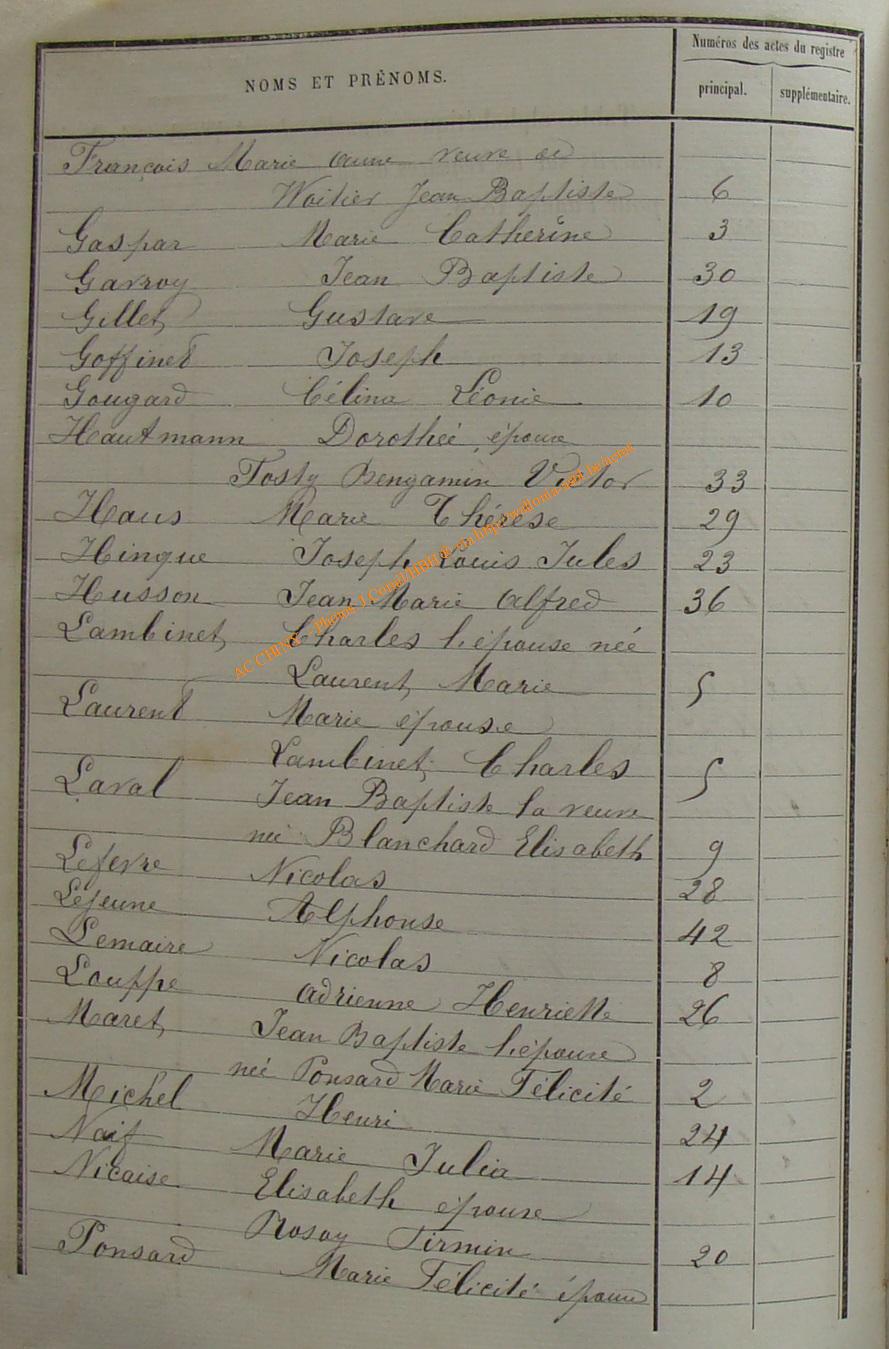 NOMS ET PRÉNOMS.
Numéros des actes du registre
principal. supplémentaire.
François Marie Anne veuve de
Woitier Jean Baptiste 6
Gaspar Marie Catherine 3
Gavroy Jean Baptiste 30
Gillet Gustave 19
Goffinet Joseph 13
Gougard Célina Léonie 10
Hautmann Dorothée épouse
Tosty Bengamin Victor 33
Haus Marie Thérèse 29
Hinque Joseph Louis Jules 23
Husson Jean Marie Alfred 36
Lambinet Charles l'épouse née
Laurent Marie 5
Laurent Marie épouse
Lambinet Charles 5
Laval Jean Baptiste la veuve
née Blanchard Elisabeth 9
Lefevre Nicolas 28
Lejeune Alphonse 42
Lemaire Nicolas 8
Louppe Adrienne Henriette 26
Maret Jean Baptiste l'épouse
née Ponsard Marie Félicité 2
Michel Henri 24
Naif Marie Julia 14
Nicaise Elisabeth épouse
Rosoy Firmin 20
Ponsard Marie Félicité épouse
AC CHINY - Photos J.